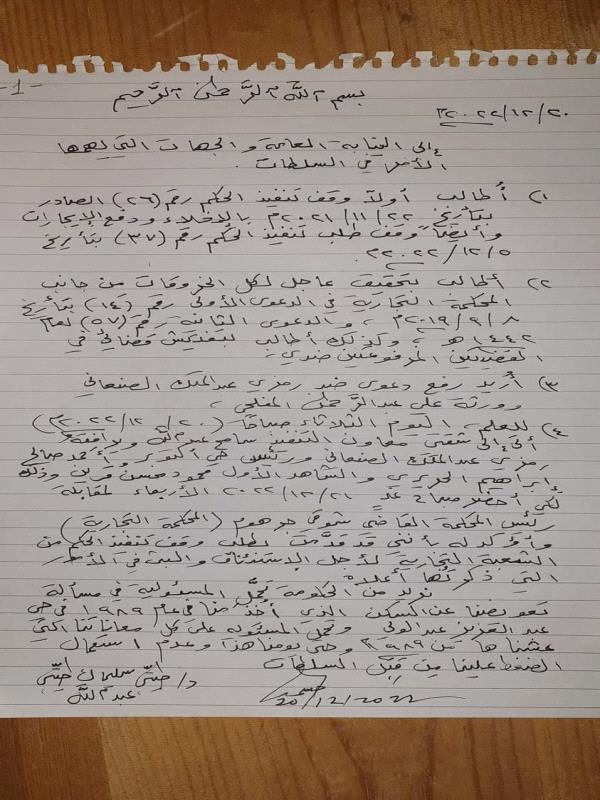 -1-
بسم الله الرَّحمٰن الرَّحيم
٢٠٢٢/١٢/٢٠م
إلى النيابة العامة والجهات التي يهمها
الأمر في السلطات.
١) أُطالب أولاً وقف تنفيذ الحكم رقم (٢٦) الصادر
بتأريخ ٢٠٢١/١١/٢٢م بالإخلاء ودفع الإيجارات
وأيضاً وقف طلب تنفيذ الحكم رقم (٣٧) بتأريخ
٢٠٢٢/١٢/٥م.
٢) أطالب بتحقيق عاجل لكل الخروقات من جانب
المحكمة التجارية في الدعوى الأولى رقم (١٤) بتأريخ
٢٠١٩/٩/٨م، والدعوى الثانية رقم (٥٧) لعام
١٤٤٢هـ، وكذلك أطالب بتفتيش قضائي في
القضيتين المرفوعتين ضدي.
٣) أُريد رفع دعوى ضد رمزي عبدالملك الصنعاني
وورثة علي عبدالرَّحمٰن المفلحي،
٤) للعلم: اليوم الثلاثاء صباحاً (٢٠٢٢/١٢/٢٠م)
أتى إلى شقتي معاون التنفيذ سامح عبدالله ويرافقه
رمزي عبدالملك الصنعاني ورئيس حي أكتوبر أحمد صالح
إبراهيم الحريري والشاهد الأول محمود محسن وذلك
لكي أحضر صباح غدٍ ٢٠٢٢/١٢/٢١ الأربعاء لمقابلة
رئيس المحكمة القاضي شوقي جرهوم (المحكمة التجارية)
وأؤكد له بأنني قد قدَّمت طلب وقف تنفيذ الحكم من
الشعبة التجارية لأجل الإستئناف والبت في الأمور
التي ذكرتها أعلاه.
نريد من الحكومة تحمُّل المسئولية في مسألة
تعويضنا عن السكن الذي أُخذ منا في عام ١٩٨٩ في حي
عبدالعزيز عبدالولي وتحمل المسئولية على كل معاناتنا التي
عشناها من ١٩٨٩م وحتى يومنا هذا وعدم استعمال
الضغط علينا مِن قِبَل السلطات
د/ سليمان
عبدالله
20/12/2022